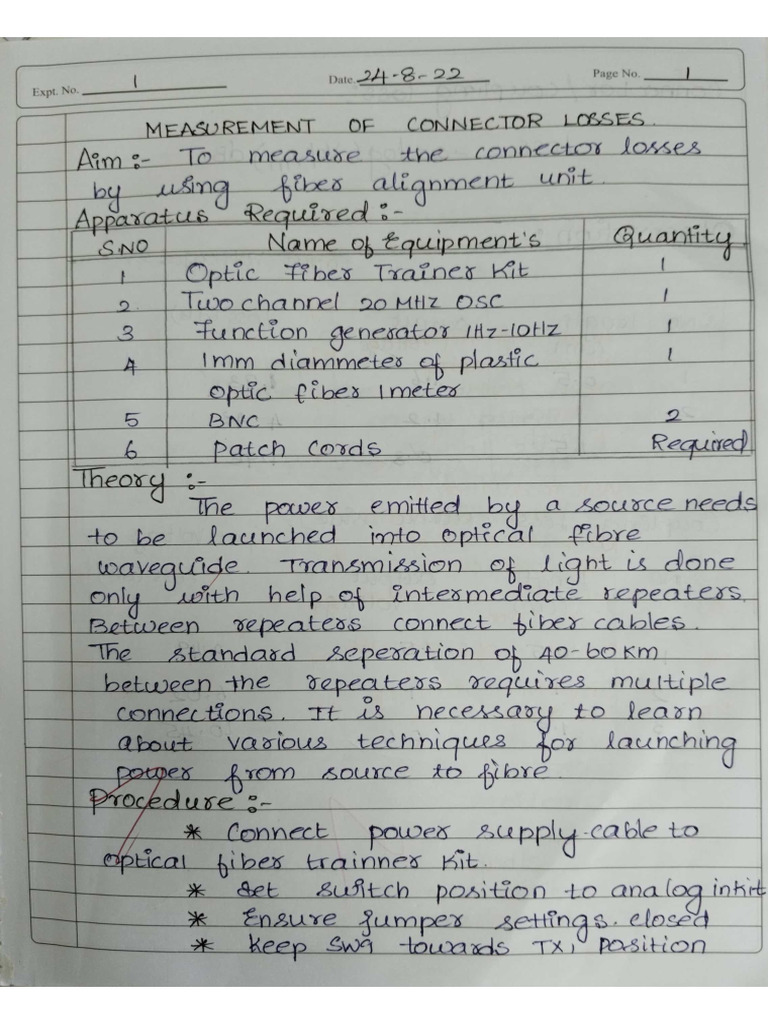 Expt. No. 1 Date. 24-8-22 Page No. 1
MEASUREMENT OF CONNECTOR LOSSES.
Aim :- To measure the connector losses
by using fiber alignment unit.
Apparatus Required :-
S.NO Name of Equipment's Quantity
1 Optic Fiber Trainer Kit 1
2 Two channel 20 MHZ OSC 1
3 Function generator 1Hz-10Hz 1
4 1mm diammeter of plastic 1
optic fiber 1meter
5 BNC 2
6 Patch Cords Required
Theory :-
The power emitted by a source needs
to be launched into optical fibre
waveguide. Transmission of light is done
only with help of intermediate repeaters.
Between repeaters connect fiber cables.
The standard seperation of 40-60Km
between the repeaters requires multiple
connections. It is necessary to learn
about various techniques for launching
power from source to fibre.
Procedure :-
* Connect power supply cable to
optical fiber trainner kit.
* Set switch position to analog inkit
* Ensure jumper settings closed
* Keep SW9 towards TX1 position